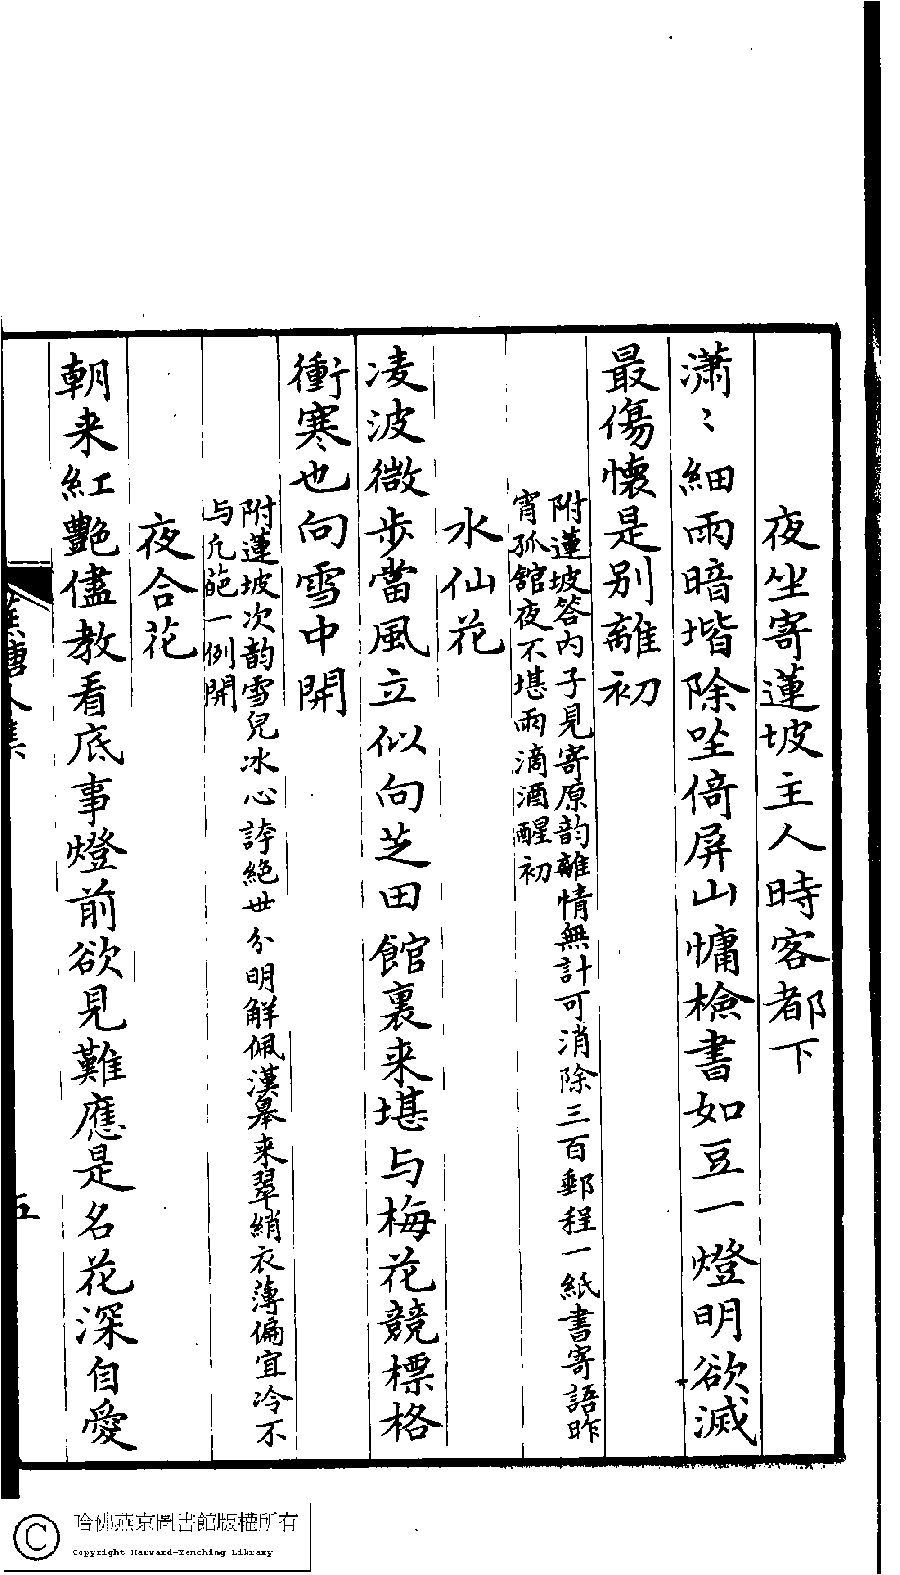 夜坐寄蓮坡主人時客都下
瀟〻細雨暗堦除坐倚屏山慵檢書如豆一燈明欲滅
最傷懷是别離初
附蓮坡答内子見寄原韵離情無計可消除三百郵程一紙書寄語昨
宵孤舘夜不堪雨滴酒醒初
水仙花
凌波微步當風立似向芝田館裏来堪与梅花競標格
衝寒也向雪中開
附蓮坡次韵雪兒氷心誇絶世分明解佩漢皋来翠綃衣薄偏宜冷不
与凡葩一例開
夜合花
朝来紅艷儘教看底事燈前欲見難應是名花深自愛
五
哈佛燕京圖書館版權所有
Copyright Harvard-Yenching Library